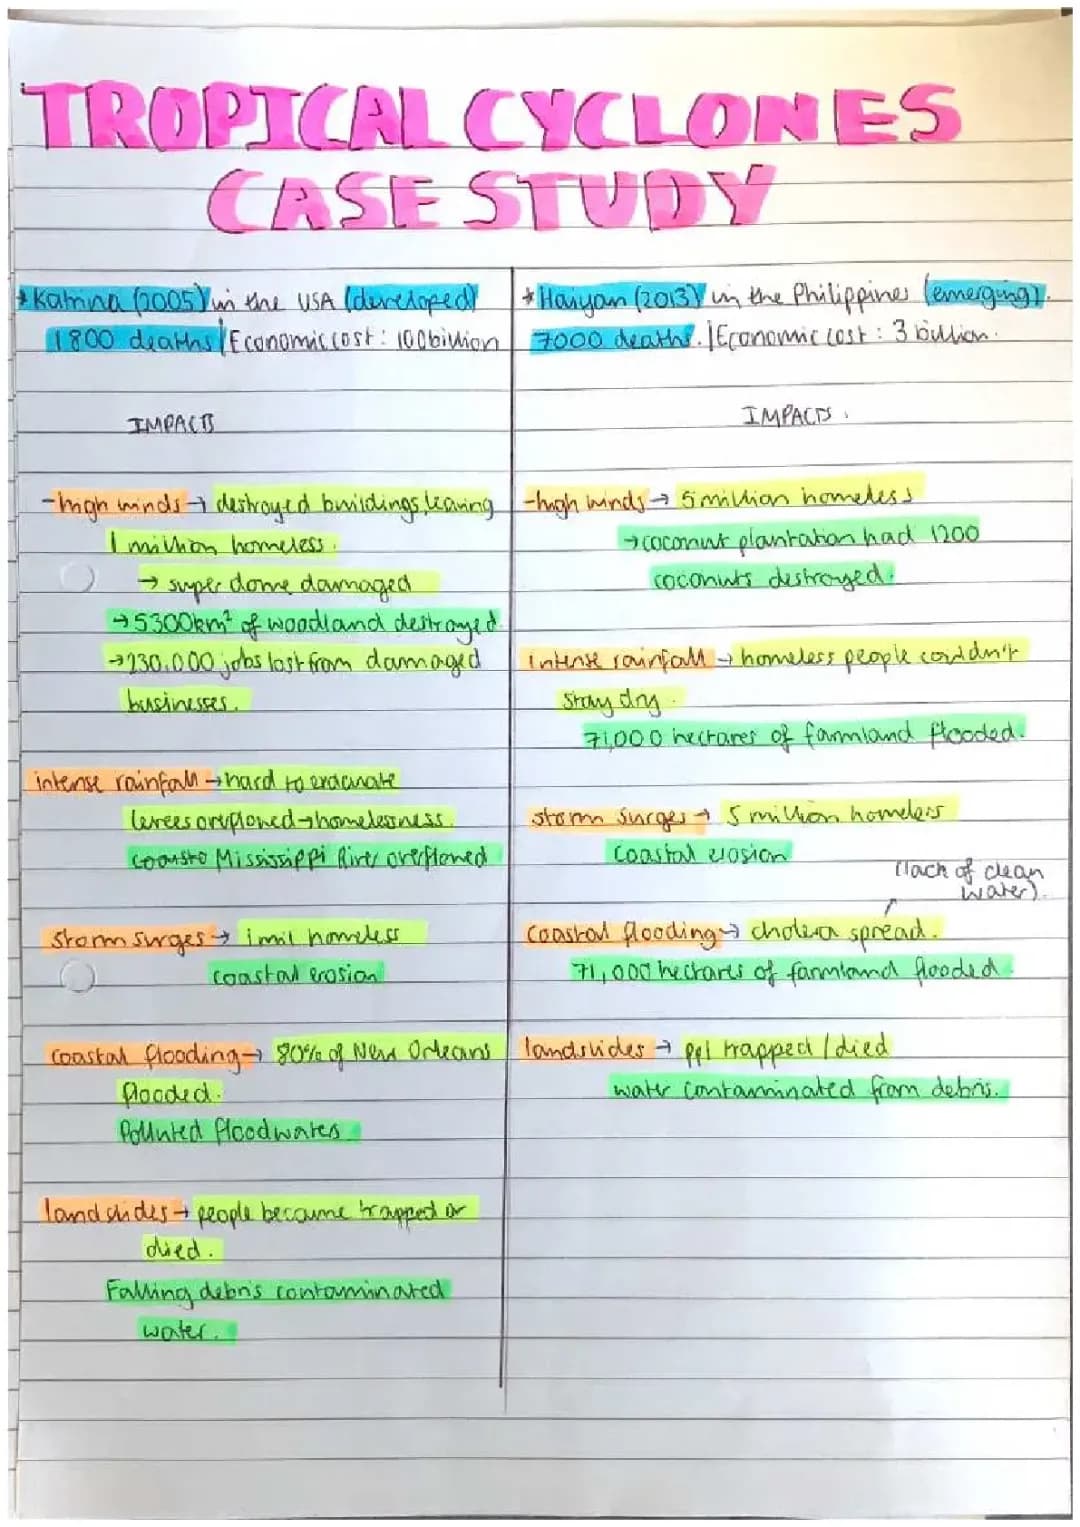 TROPICAL CYCLONES
CASE STUDY
*Katrina (2005) in the USA (developed)
1800 deaths | Economic cost: 100billion
IMPACTS
-high winds → destroyed buildings, leaving
1 million homeless.
→ super dome damaged
→ 5300km² of woodland destroyed.
→ 230,000 jobs lost from damaged
businesses.
intense rainfall → hard to evacuate
levees overflowed → homelessness.
Mississippi River overflowed
storm surges → 1 mil homeless
coastal erosion
coastal flooding → 80% of New Orleans
flooded.
Polluted floodwaters
landslides → people became trapped or
died.
Falling debris contaminated
water.
*Haiyan (2013) in the Philippines (emerging).
7000 deaths. | Economic cost: 3 billion.
IMPACTS.
-high winds → 5 million homeless
→ coconut plantation had 1200
coconuts destroyed.
intense rainfall → homeless people couldn't
stay dry.
71,000 hectares of farmland flooded.
storm surges → 5 million homeless
coastal erosion
(lack of clean
water).
coastal flooding → cholera spread.
71,000 hectares of farmland flooded.
landslides → ppl trapped / died
water contaminated from debris.